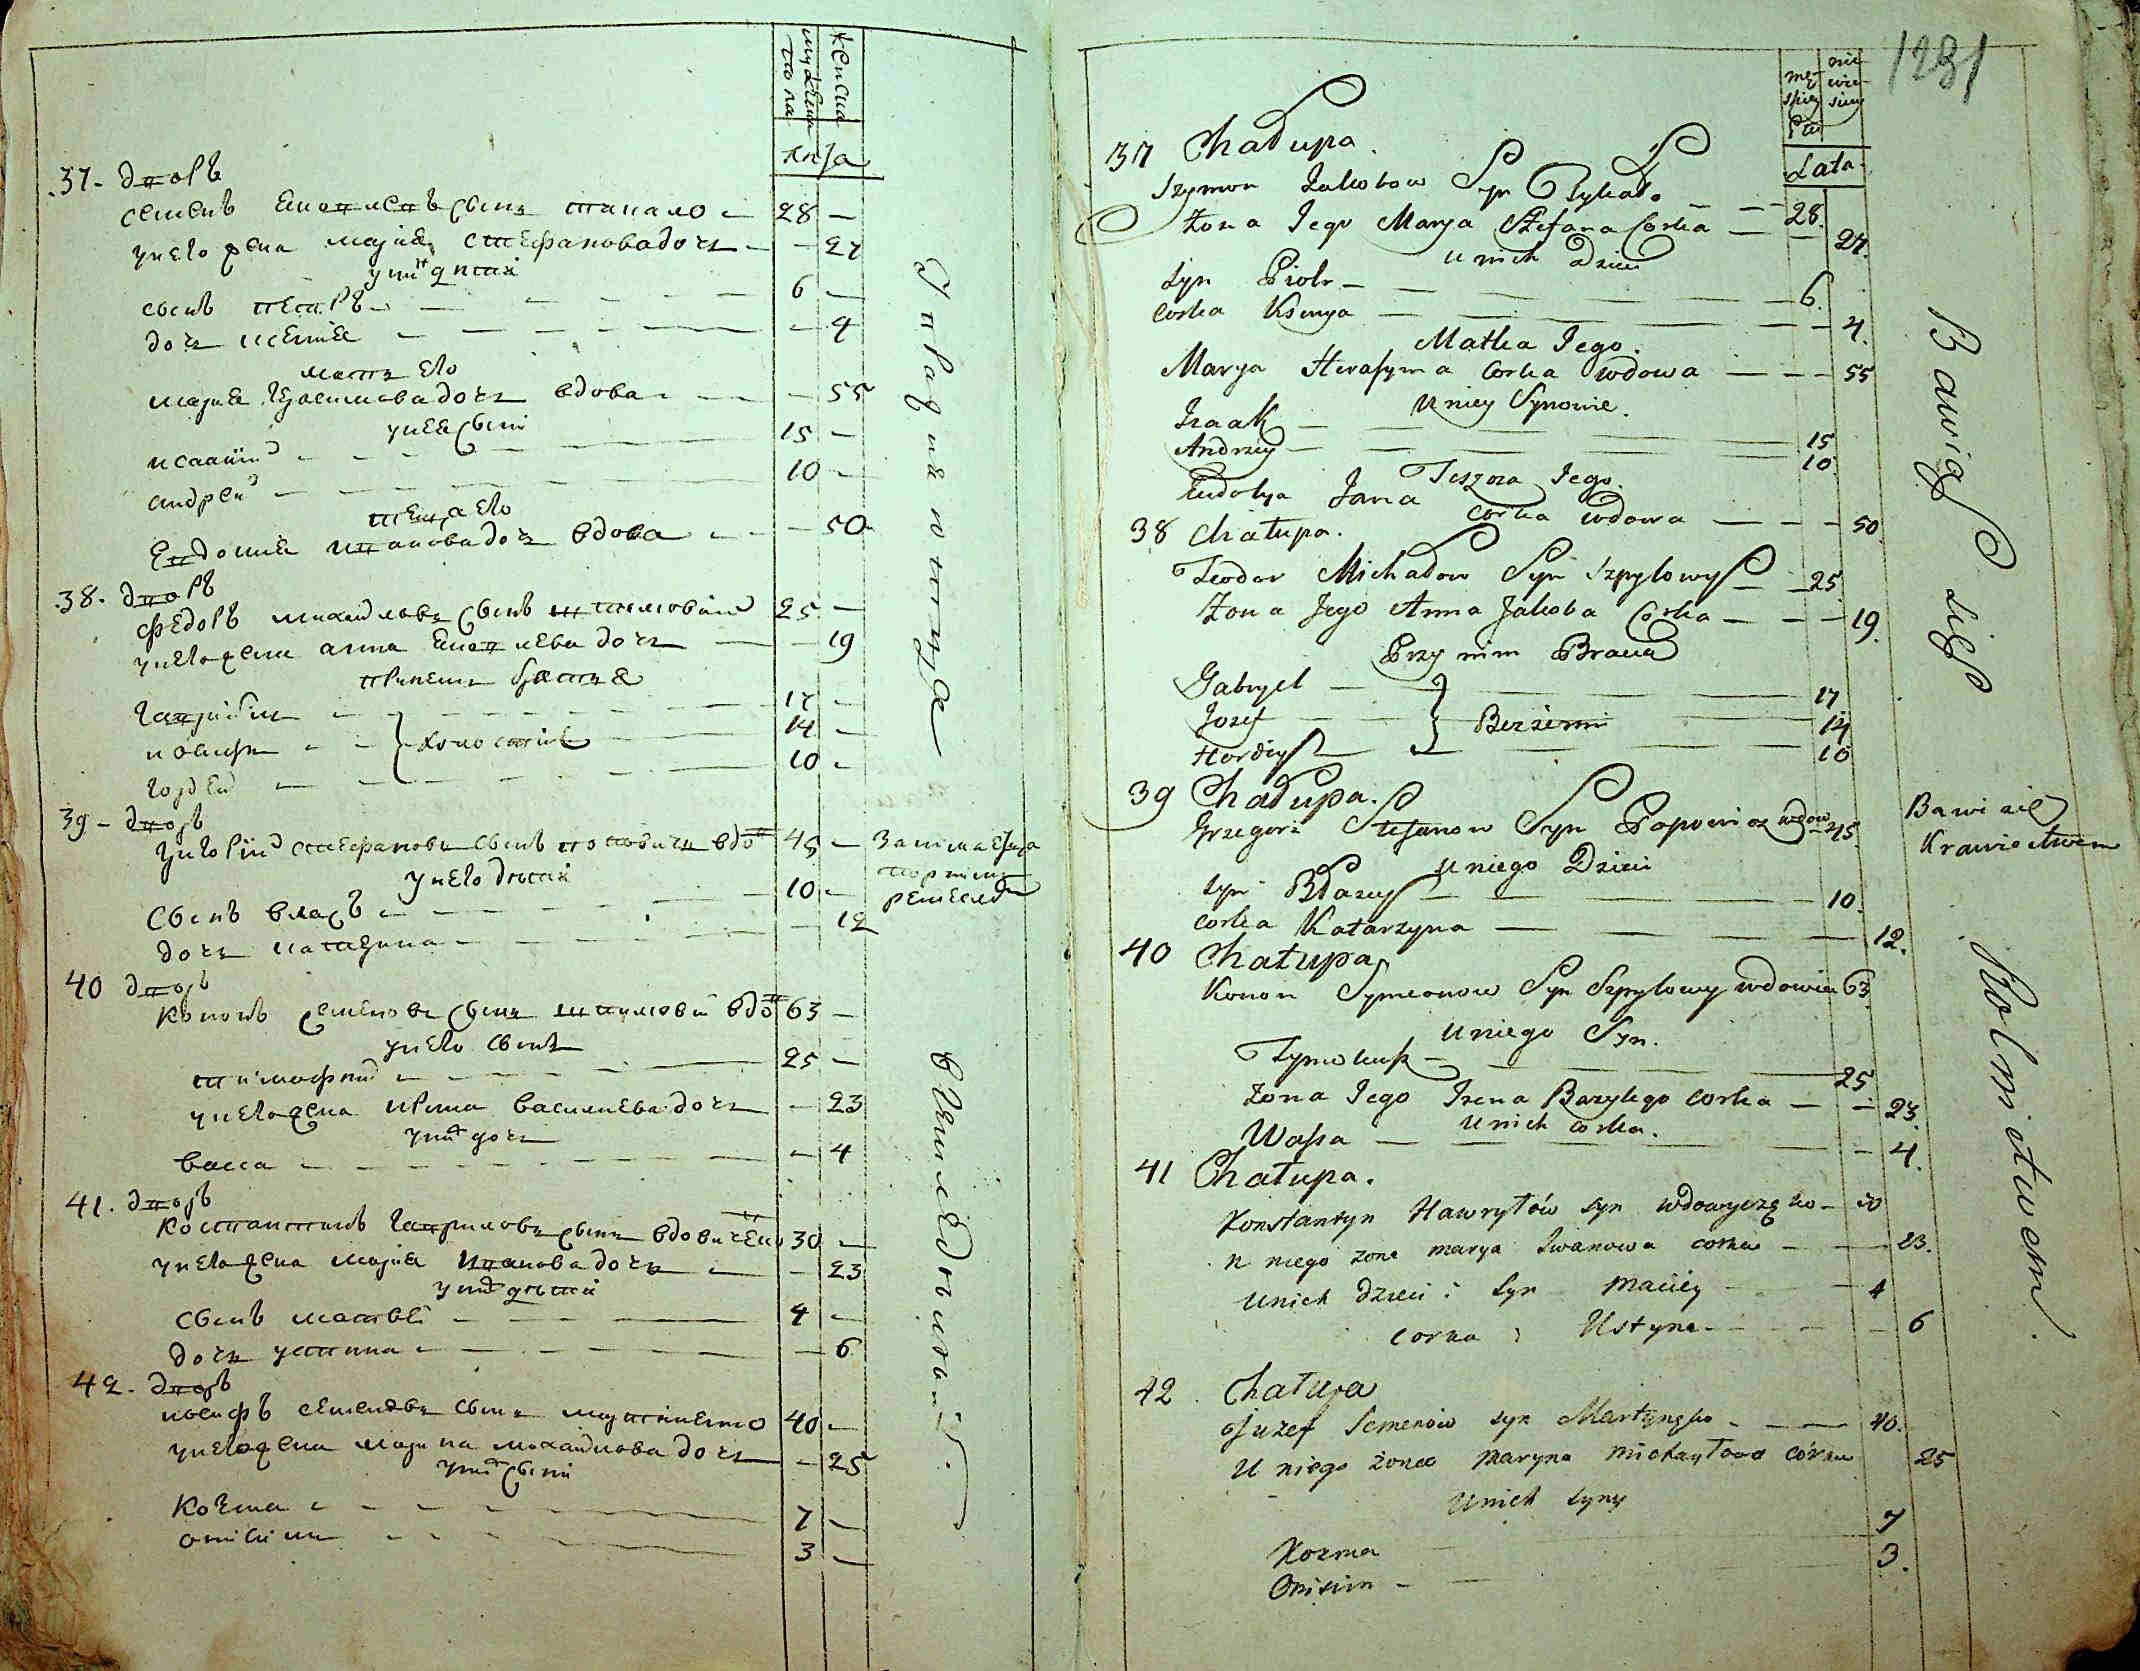 женска
мужеска
пола
лѣта
37 - дворъ
Семенъ
28
у него жена Марія Стефанова дочь
27
у нихъ дѣти
сынъ Петръ
6
дочь Ксенія
4
мать его
Марія Герасимова дочь вдова
55
у нея сыни
Исаакій
15
Андрей
10
теща его
Евдокия Иванова дочь вдова
50
38. дворъ
Федоръ Михайловъ сынъ
25
у него жена Анна Яковлева дочь
19
при немъ братья
Гавріилъ
17
Иосифъ
холостие
14
Гордей
10
39 - дворъ
Григорій Стефановъ сынъ Поповичъ вдов
45
Занимается
портнимъ
ремесломъ
у него дѣти
Сынъ Власъ
10
дочь Катерина
12
40 дворъ
Кононъ Семеновъ сынъ Шпилович вдов
63
у него сынъ
Тимофей
25
у него жена Ирина Васильева дочь
23
у них дочь
Васса
4
41. дворъ
Костантинъ Гавриловъ сынъ Вдовиченко
30
у него жена Марія Иванова дочь
23
у нихъ дѣти
Сынъ Матвей
4
дочь Устина
6
42. дворъ
Иосифъ Семеновъ сынъ
40
у него жена Марина Михайлова дочь
25
у нихъ сыни
Козма
7
Онисимъ
3
Упражняются
в земледелии
1281
męs
skiey
Płci
nie
wie
sciey
Lata
37 Chałupa.
Szymon Jakobow Syn
28.
Żona Jego Marya Stefana Corka
27.
u nich Dzieci
Syn Piotr
6.
Corka Ksenya
4.
Matka Jego.
Marya Herasyma Corka wdowa
55
u niey Synowie.
Izaak
15
Andrzey
10
Teszcza Jego.
Eudokya Jana Corka wdowa
50.
38 Chałupa.
Teodor Michałow Syn Szpylowy
25
Żona Jego Anna Jakoba Corka
19.
Przy nim Bracia
Gabryel
17
Jozef
Bezżenni
14
Hordiy
10
39 Chałupa.
Grzegorz Stefanow Syn Popowicz wdow
45.
Bawi się
Krawiectwem
u niego Dzieci
Syn Błazey
10.
Corka Katarzyna
12.
40 Chałupa
Konon Symeonow Syn Szpylowy wdowiec
63
u niego Syn.
Tymoteusz
25
Żona Jego Irena Bazylego corka
23.
u nich corka.
Wassa
4.
41 Chałupa.
Konstantyn Hawryłów syn wdowyczęko
30
u niego żona Marya Iwanowa corka
23.
u nich dzieci: syn Maciey
4
corka Ustyna
6
42 Chałupa
Juzef Semenów syn Martynęko
40.
u niego żona Maryna Michayłowa córka
25
u nich syny
Kozma
7
Onisim
3.
Bawią się
Rolnictwem.